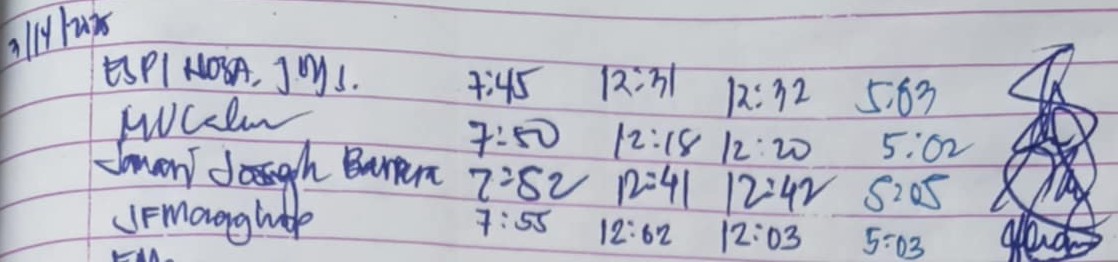 3/14/2025
ESPINOSA, J.M.S. 7:45 12:31 12:32 5:03
7:50 12:18 12:20 5:02
Joseph Barrera 7:52 12:41 12:42 5:05
7:55 12:02 12:03 5:03